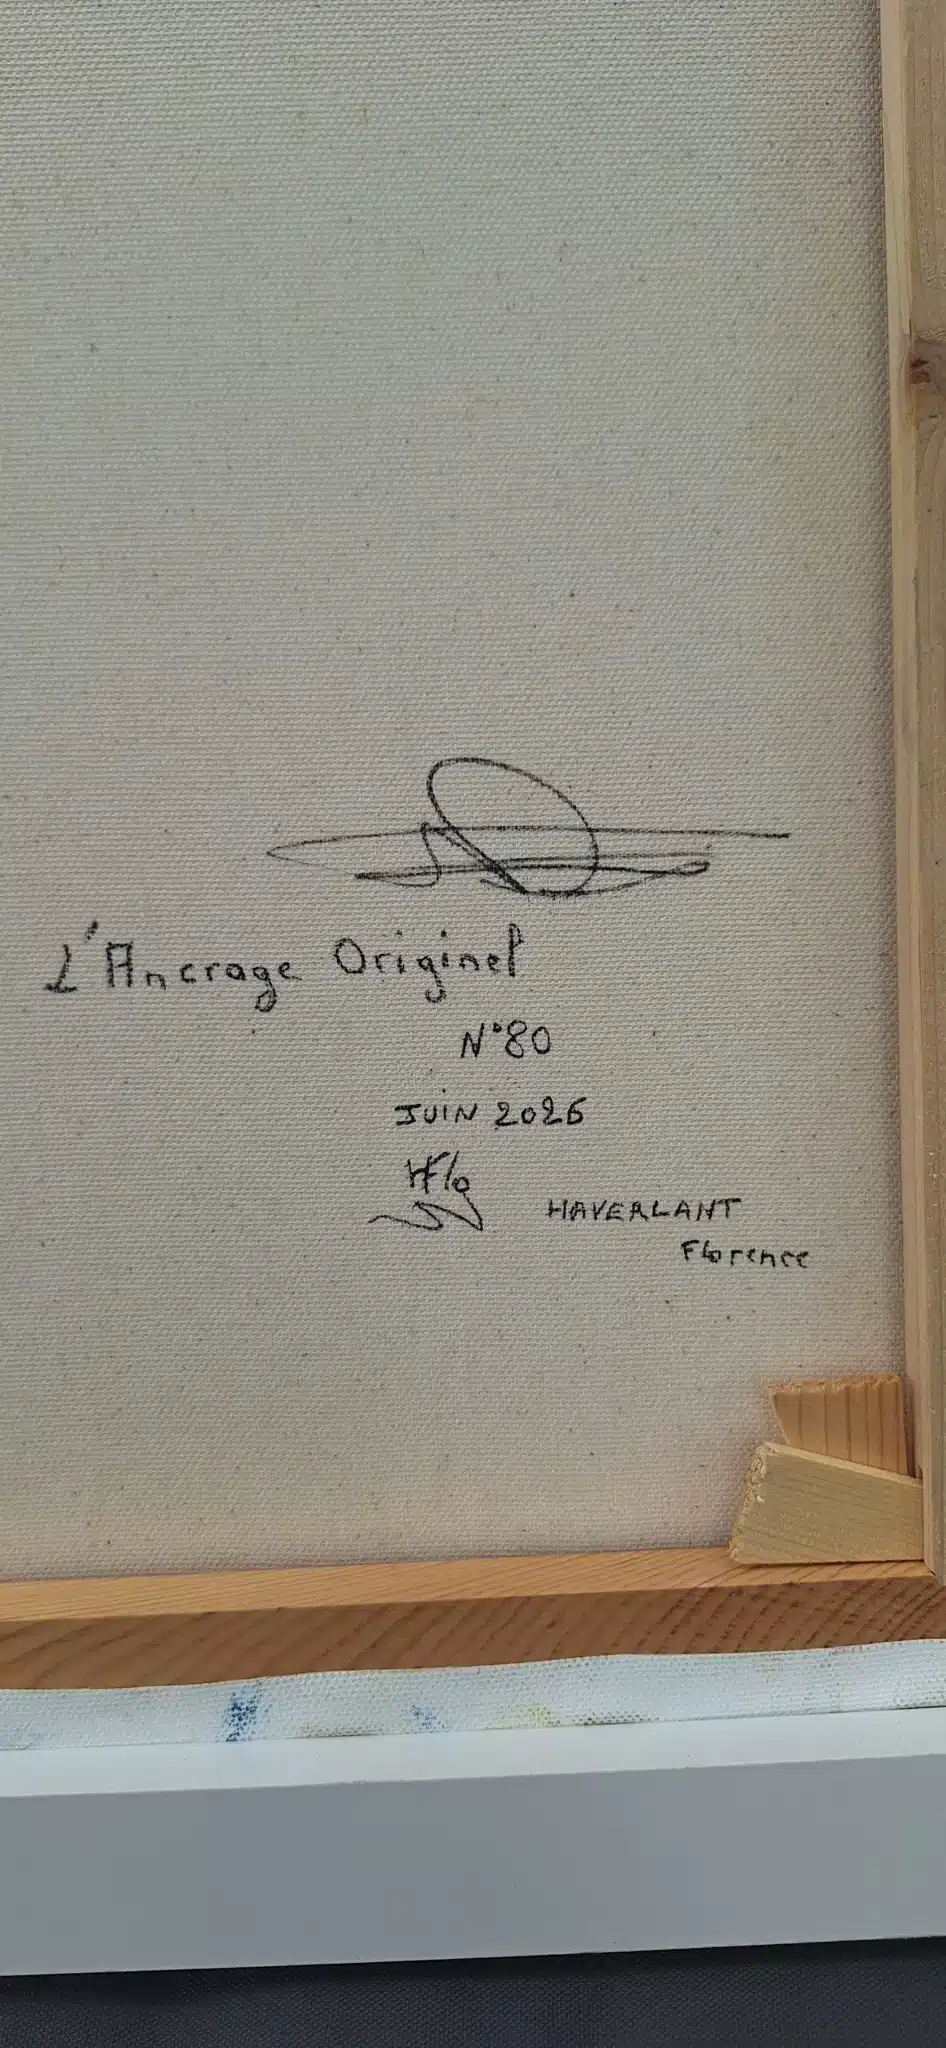 L'Ancrage Originel
N°80
JUIN 2025
HFlo
HAVERLANT
Florence